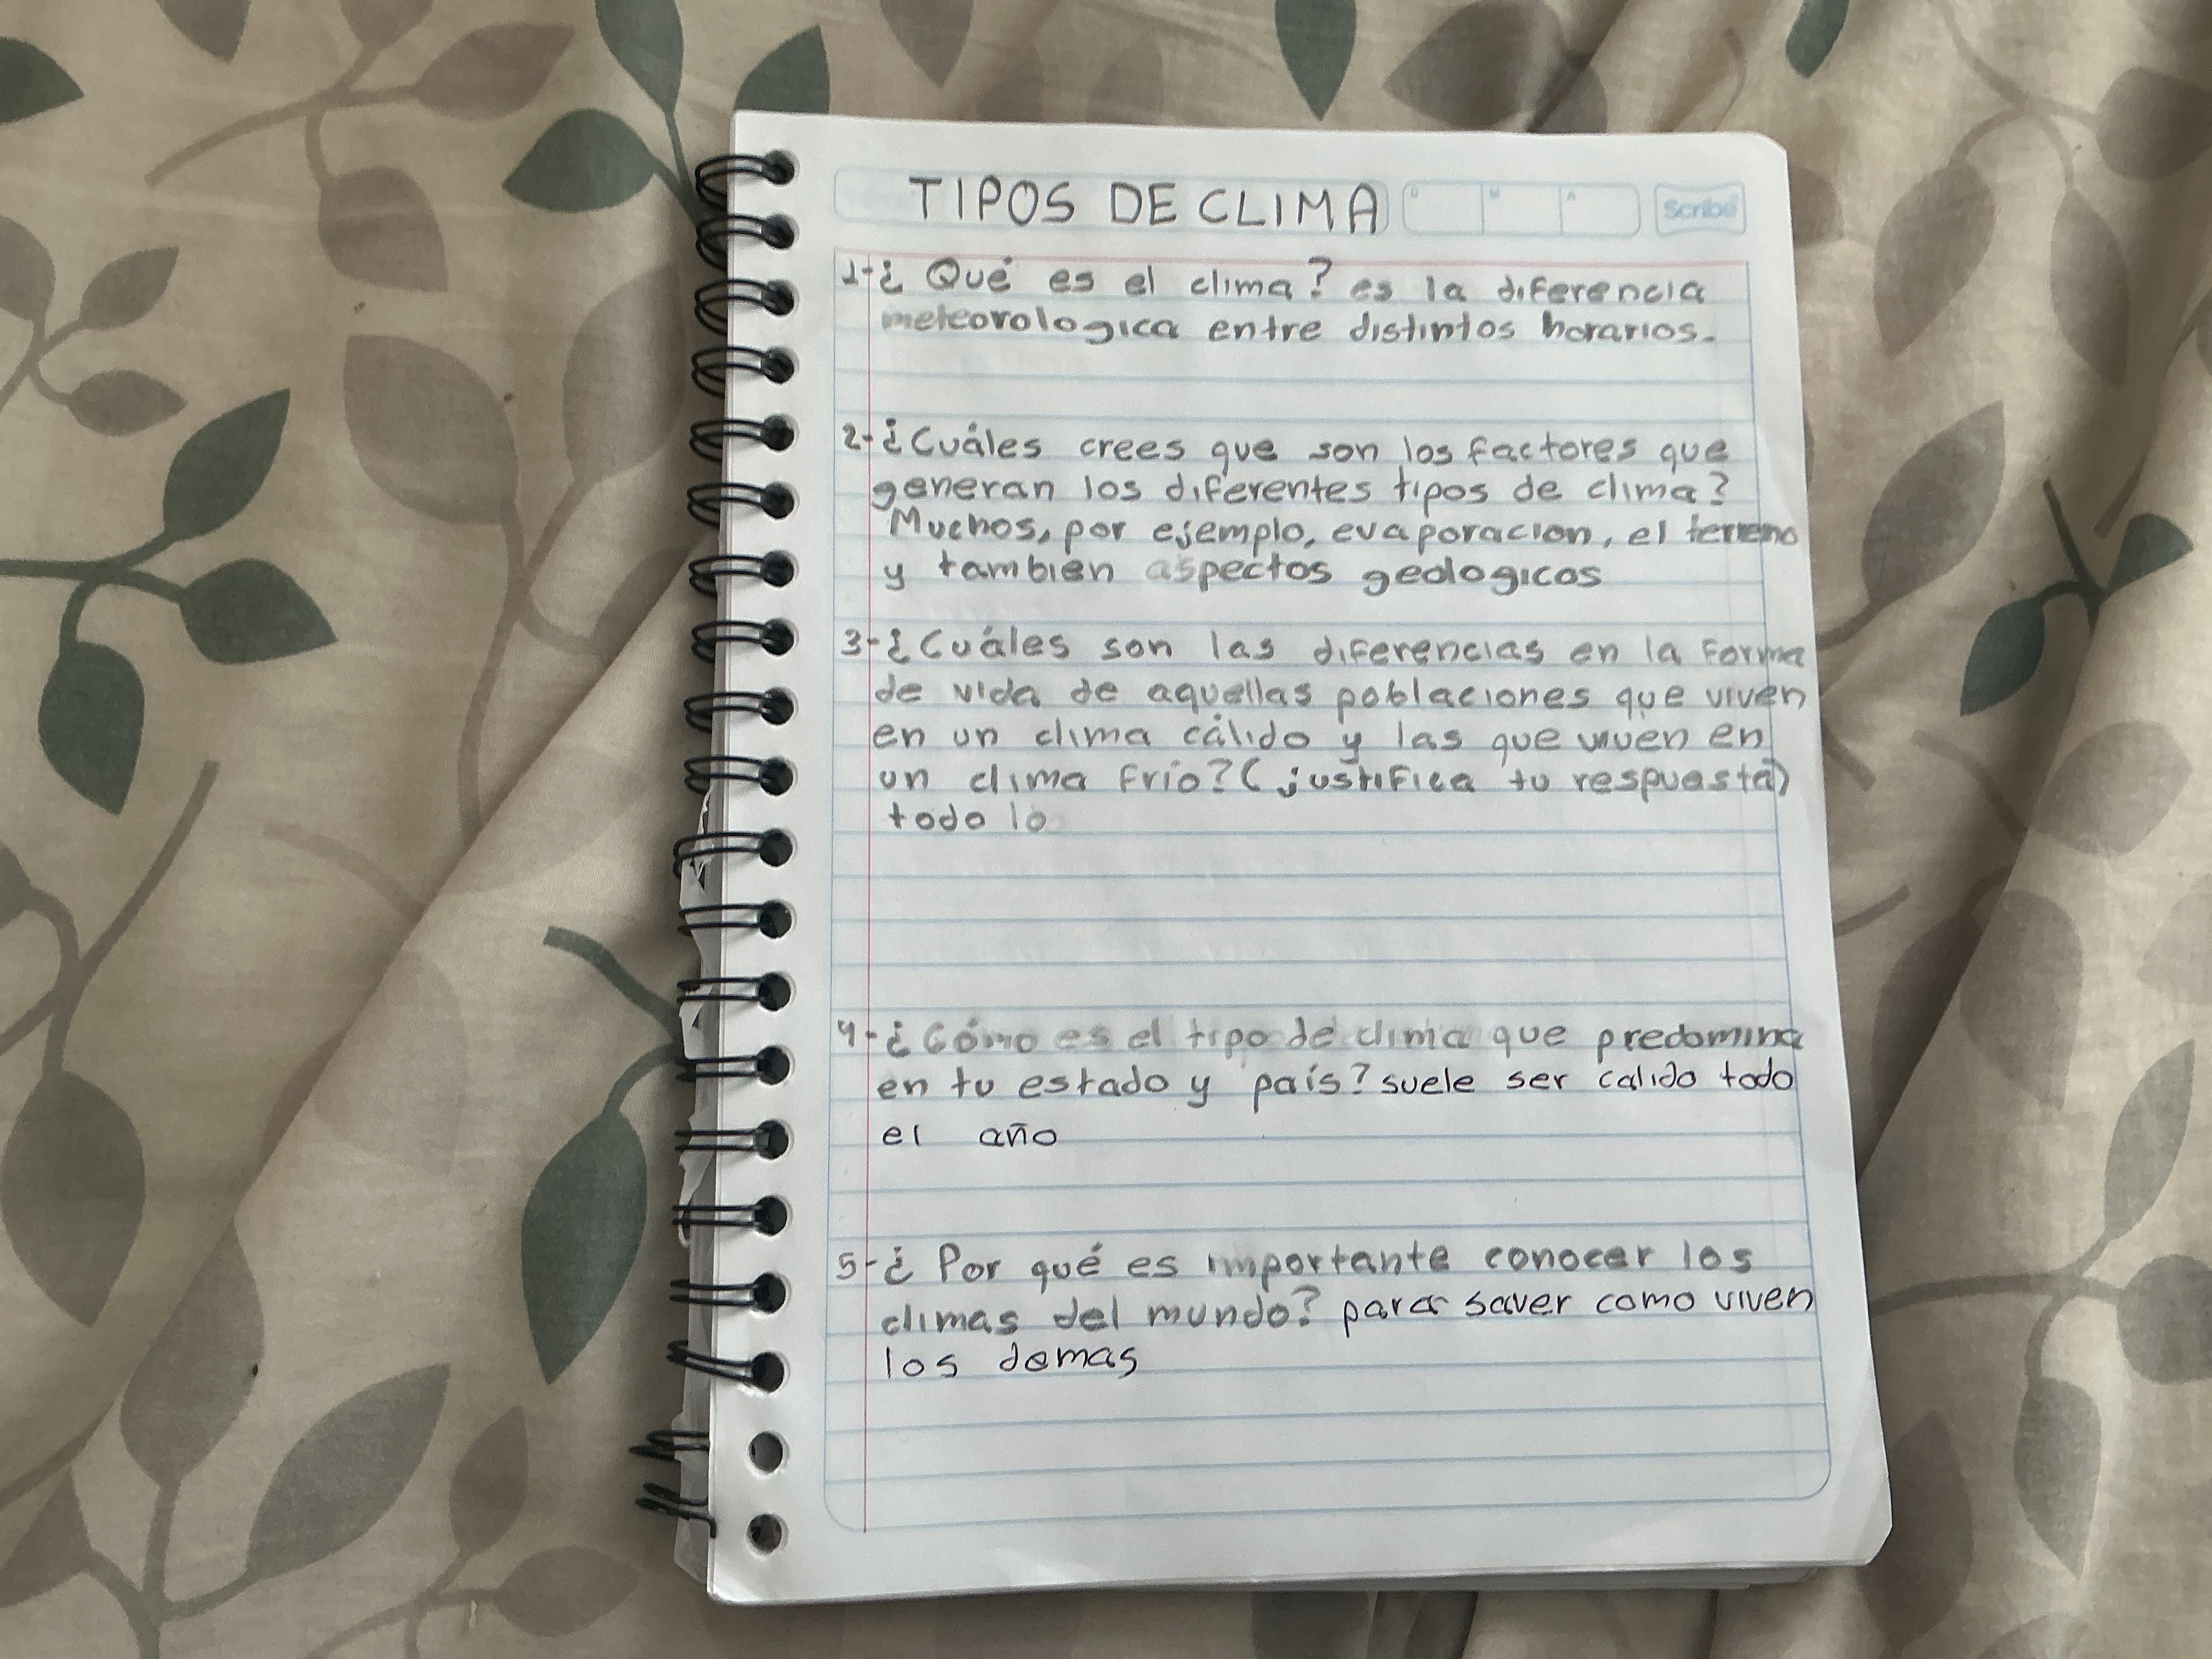 TIPOS DE CLIMA
D M A
Scribe
1-¿Qué es el clima? es la diferencia
meteorologica entre distintos horarios.
2-¿Cuáles crees que son los factores que
generan los diferentes tipos de clima?
Muchos, por ejemplo, evaporacion, el terreno
y tambien aspectos geologicos
3-¿Cuáles son las diferencias en la forma
de vida de aquellas poblaciones que viven
en un clima cálido y las que viven en
un clima frío? (justifica tu respuesta)
todo lo
4-¿Cómo es el tipo de clima que predomina
en tu estado y país? suele ser calido todo
el año
5-¿Por qué es importante conocer los
climas del mundo? para saver como viven
los demas